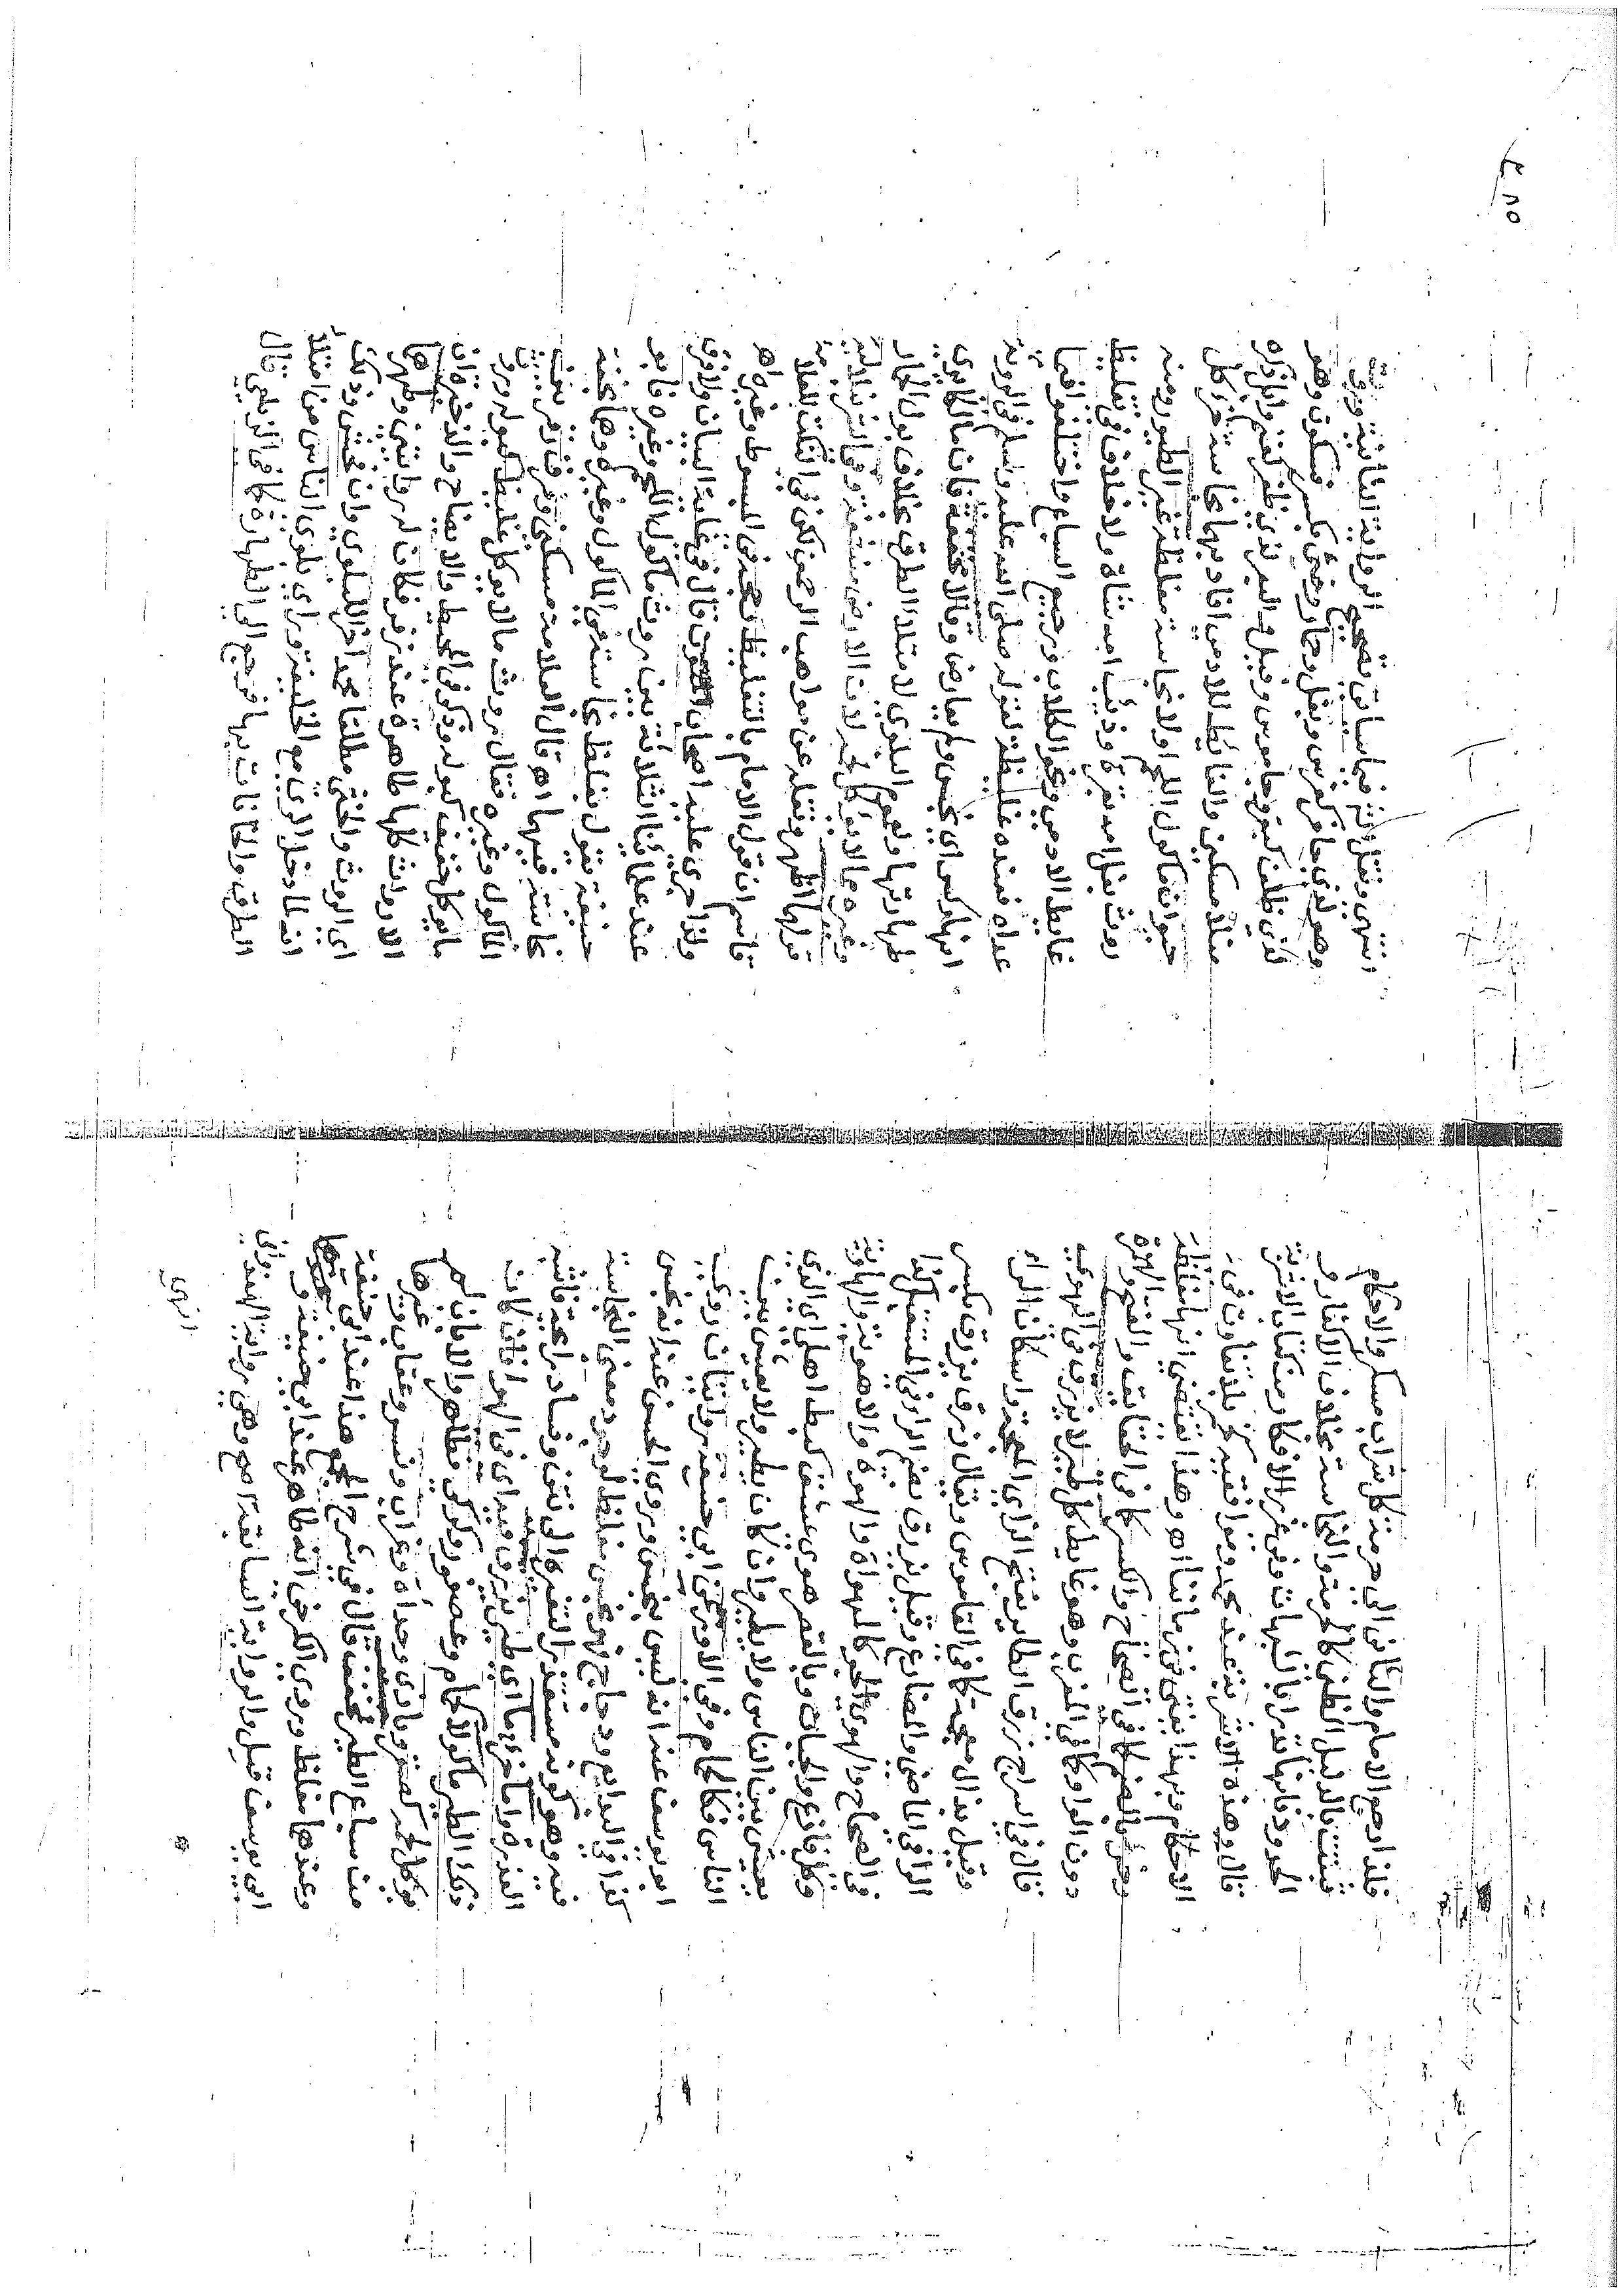 فلذا رجح الامام والكافي الى حرمة كل شراب مسكر والاحكام
تثبت بالدليل الظني كالحرمة والنجاسة بخلاف الاكفار و
الحدود فانها تدرأ بالشبهات وفي غرر الافكار من كتاب الاشربة
قال وهذه الاشربة عند محمد وموافقيه كخمر بلا تفاوت في
الاحكام وبهذا يفتى في زماننا اه وهذا يقتضي انها مغلظة
وخرء بالضم كما في الصحاح والكسر كما في الحقائق والفتح والهمزة
دون الواو كما في المغرب وهو غايط كل طير لا يزرق في الهوى
قال في السراج زرق الطاير بفتح الزاي المعجمة واسكان الراء
وقيل بذال معجمة كما في القاموس ويقال ذرق يزرق بكسر
الراء في الماضي والمضارع وقيل يزرق بفتح الراء في المستقبل كذا
في الصحاح والهوى الجو كالمهواة والهوة والاهوية والهاوية
وكل فارغ والجبان وبالقصر هوى عشق كبط اهلي اي الذي
يعيش بين الناس ولا يطير وان كان يطير ولا يعيش بين
الناس فكالحمام وفي الاوز عن ابي حنيفة روايتان روى
ابو يوسف عنه انه ليس بنجس وروى الحسن عنه انه نجس
كذا في البدايع ودجاج نجس مغلظ لوجود معنى النجاسة
فيه وهو كونه مستقذرا لتغيره الى نتن وفساد رايحة فاشبه
العذرة واما خرء ما اي طير يزرق فيه اي في الهوا فان كان
وكذا الطير مأكولا كحمام وعصفور وكركي فطاهر والا فان لم
يؤكل لحمه كصقر وبازي وحدأة وغراب ونسر وعقاب وغيرها
من سباع الطير فمخفف قال في شرح المجمع هذا عند ابي حنيفة
وعندهما مغلظ وروى الكرخي انه طاهر عند ابي حنيفة و
ابي يوسف قيل والرواية السابقة اصح وهي رواية الهندواني
انتهى ونقل فيما سياتي تصحيح الرواية الثانية وروث
وهو لذي حافر كفرس وبغل وحمار وخثي بكسر فسكون وهو
لذي ظلف كبقر وجاموس وفيل وبعر لذي ظلف كغنم وابل ذكره
منلا مسكين والغائط للادمي افاد بها نجاسة خرء كل
حيوان مأكول اللحم اولا نجاسة مغلظة غير الطيور ومنه
روث بغل امه بقرة وذئب امه شاة ولا خلاف في تغليظ
غايط الادمي ونحو الكلاب ورجيع السباع واختلفوا فيما
عداه فعنده غليظة لقوله صلى الله عليه وسلم في الروثة
انها ركس اي نجس ولم يعارض وقالا مخففة فان مالكا يرى
طهارتها ولعموم البلوى لامتلاء الطرق بخلاف بول الحمار
وغيره مما لا يؤكل لحمه لان الارض
قولهما اظهر ونقله عن مواهب الرحمن لكن في النكت للعلامة
قاسم ان قول الامام بالتغليظ رجحه في المبسوط وغيره اه
ولذا جرى عليه اصحاب المتون قال في غاية البيان ولا فرق
عند علمائنا الثلاثة بين روث مأكول اللحم وغيره فابو
حنيفة يقول بغلظ نجاسته في المأكول وغيره وهما بخفة
نجاسته فيهما اه قال العلامة مسكين وفرق زفر بين
المأكول وغيره فقال روث ما لا يؤكل غليظ كبوله وروث
ما يؤكل خفيف كبوله وذكر في المحيط والايضاح والذخيرة ان
الارواث كلها طاهرة عند زفر فكان له روايتين وطهرهما
اي الروث والخثي مطلقا محمد آخرا للبلوى وان فحش وذلك
انه لما دخل الري مع الخليفة وراى بلوى الناس من امتلاء
الطرق والخانات بها فرجع الى الطهارة كما في الزيلعي قال